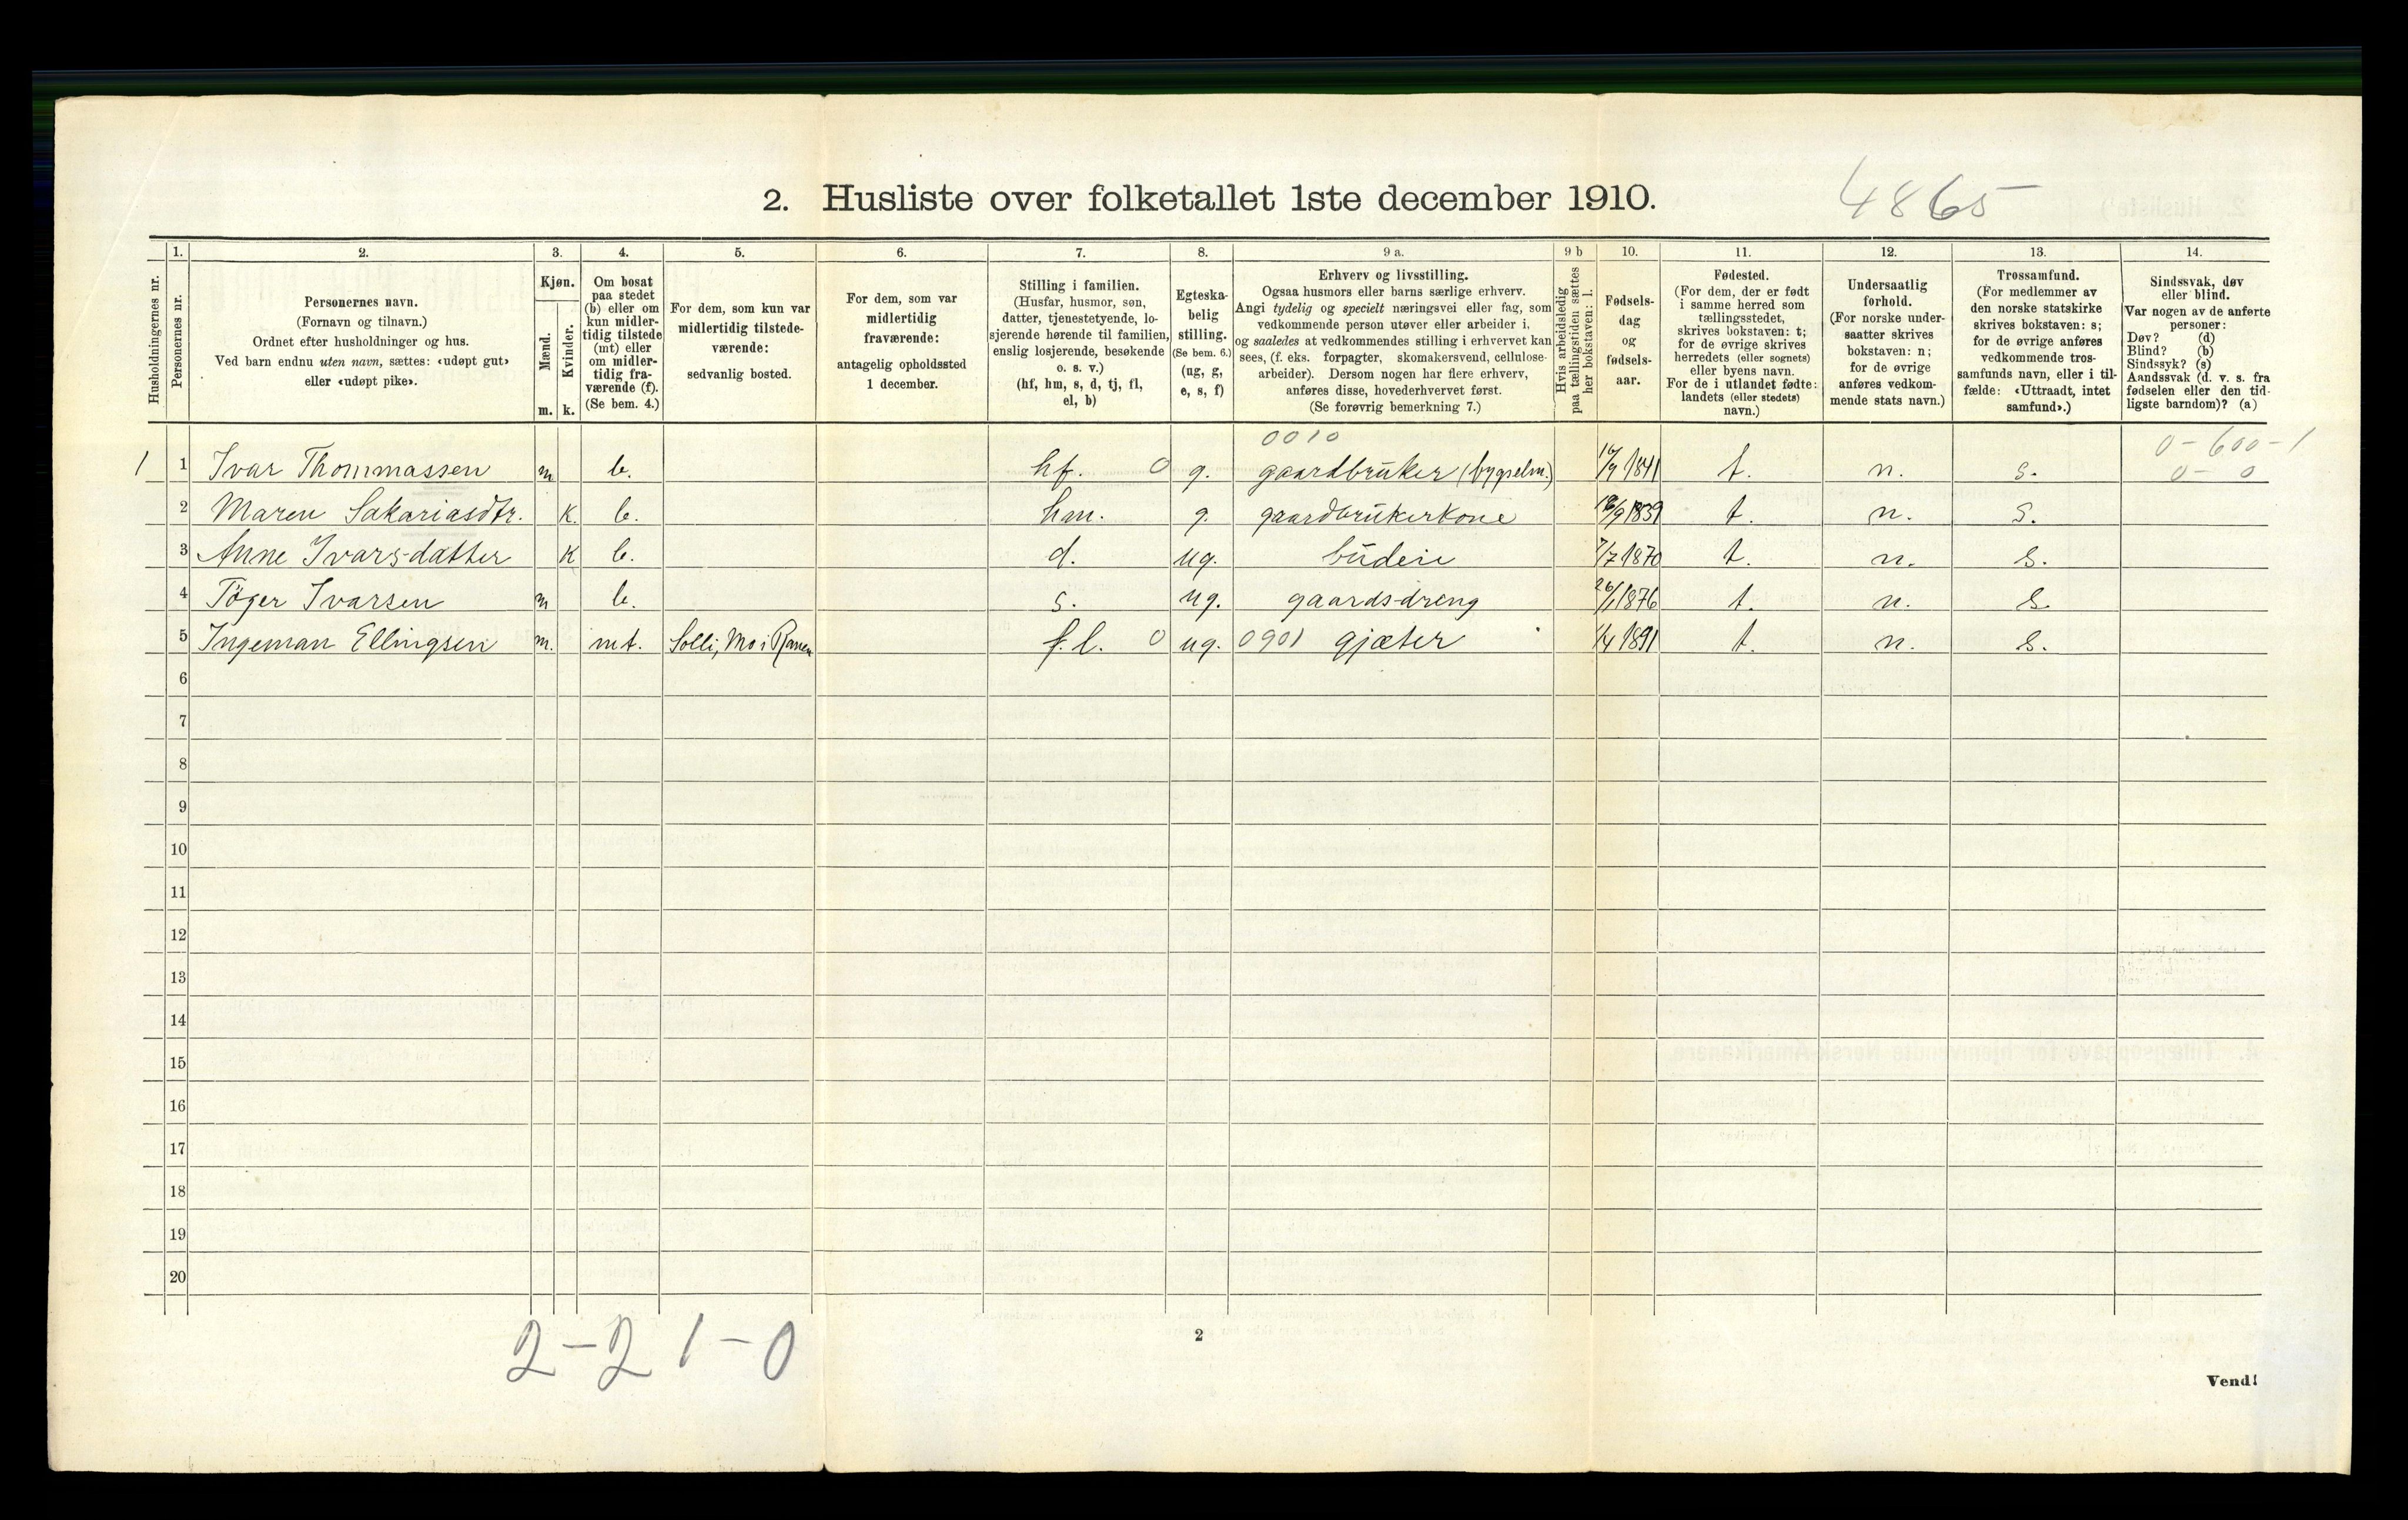 2. Husliste over folketallet 1ste december 1910.
4865
1. 2. 3. 4. 5. 6. 7. 8. 9 a. 9 b 10. 11. 12. 13. 14.
Husholdningernes nr.
Personernes nr.
Personernes navn.
(Fornavn og tilnavn.)
Ordnet efter husholdninger og hus.
Ved barn endnu uten navn, sættes: «udøpt gut»
eller «udøpt pike».
Kjøn.
Mænd.
Kvinder.
m. k.
Om bosat
paa stedet
(b) eller om
kun midler-
tidig tilstede
(mt) eller
om midler-
tidig fra-
værende (f).
(Se bem. 4.)
For dem, som kun var
midlertidig tilstede-
værende:
sedvanlig bosted.
For dem, som var
midlertidig
fraværende:
antagelig opholdssted
1 december.
Stilling i familien.
(Husfar, husmor, søn,
datter, tjenestetyende, lo-
sjerende hørende til familien,
enslig losjerende, besøkende
o. s. v.)
(hf, hm, s, d, tj, fl,
el, b)
Egteska-
belig
stilling.
(Se bem. 6.)
(ug, g,
e, s, f)
Erhverv og livsstilling.
Ogsaa husmors eller barns særlige erhverv.
Angi tydelig og specielt næringsvei eller fag, som
vedkommende person utøver eller arbeider i,
og saaledes at vedkommendes stilling i erhvervet kan
sees, (f. eks. forpagter, skomakersvend, cellulose-
arbeider). Dersom nogen har flere erhverv,
anføres disse, hovederhvervet først.
(Se forøvrig bemerkning 7.)
Hvis arbeidsledig
paa tællingstiden sættes
her bokstaven: l.
Fødsels-
dag
og
fødsels-
aar.
Fødested.
(For dem, der er født
i samme herred som
tællingsstedet,
skrives bokstaven: t;
for de øvrige skrives
herredets (eller sognets)
eller byens navn.
For de i utlandet fødte:
landets (eller stedets)
navn.)
Undersaatlig
forhold.
(For norske under-
saatter skrives
bokstaven: n;
for de øvrige
anføres vedkom-
mende stats navn.)
Trossamfund.
(For medlemmer av
den norske statskirke
skrives bokstaven: s;
for de øvrige anføres
vedkommende tros-
samfunds navn, eller i til-
fælde: «Uttraadt, intet
samfund».)
Sindssvak, døv
eller blind.
Var nogen av de anførte
personer:
Døv? (d)
Blind? (b)
Sindssyk? (s)
Aandssvak (d. v. s. fra
fødselen eller den tid-
ligste barndom)? (a)
0010 0-600-1
1 1 Ivar Thommassen m b. hf. 0 g. gaardbruker (bygselm.) 1841 t. n. s. 0- 0
2 Maren Sakariasdtr. K. b. hm. g. gaardbrukerkone 1839 t. n. s.
3 Anne Ivarsdatter K b. d. ug. budeie 7/7 1870 t. n. s.
4 Tøger Ivarsen m b. s. ug. gaardsdreng 26/1 1876 t. n. s.
5 Ingeman Ellingsen m. mt. Solli, Mo i Ranen f.l. 0 ug. 0901 gjæter 1/4 1891 t. n. s.
6
7
8
9
10
11
12
13
14
15
16
17
18
19
20
2-2 1-0
2
Vend!